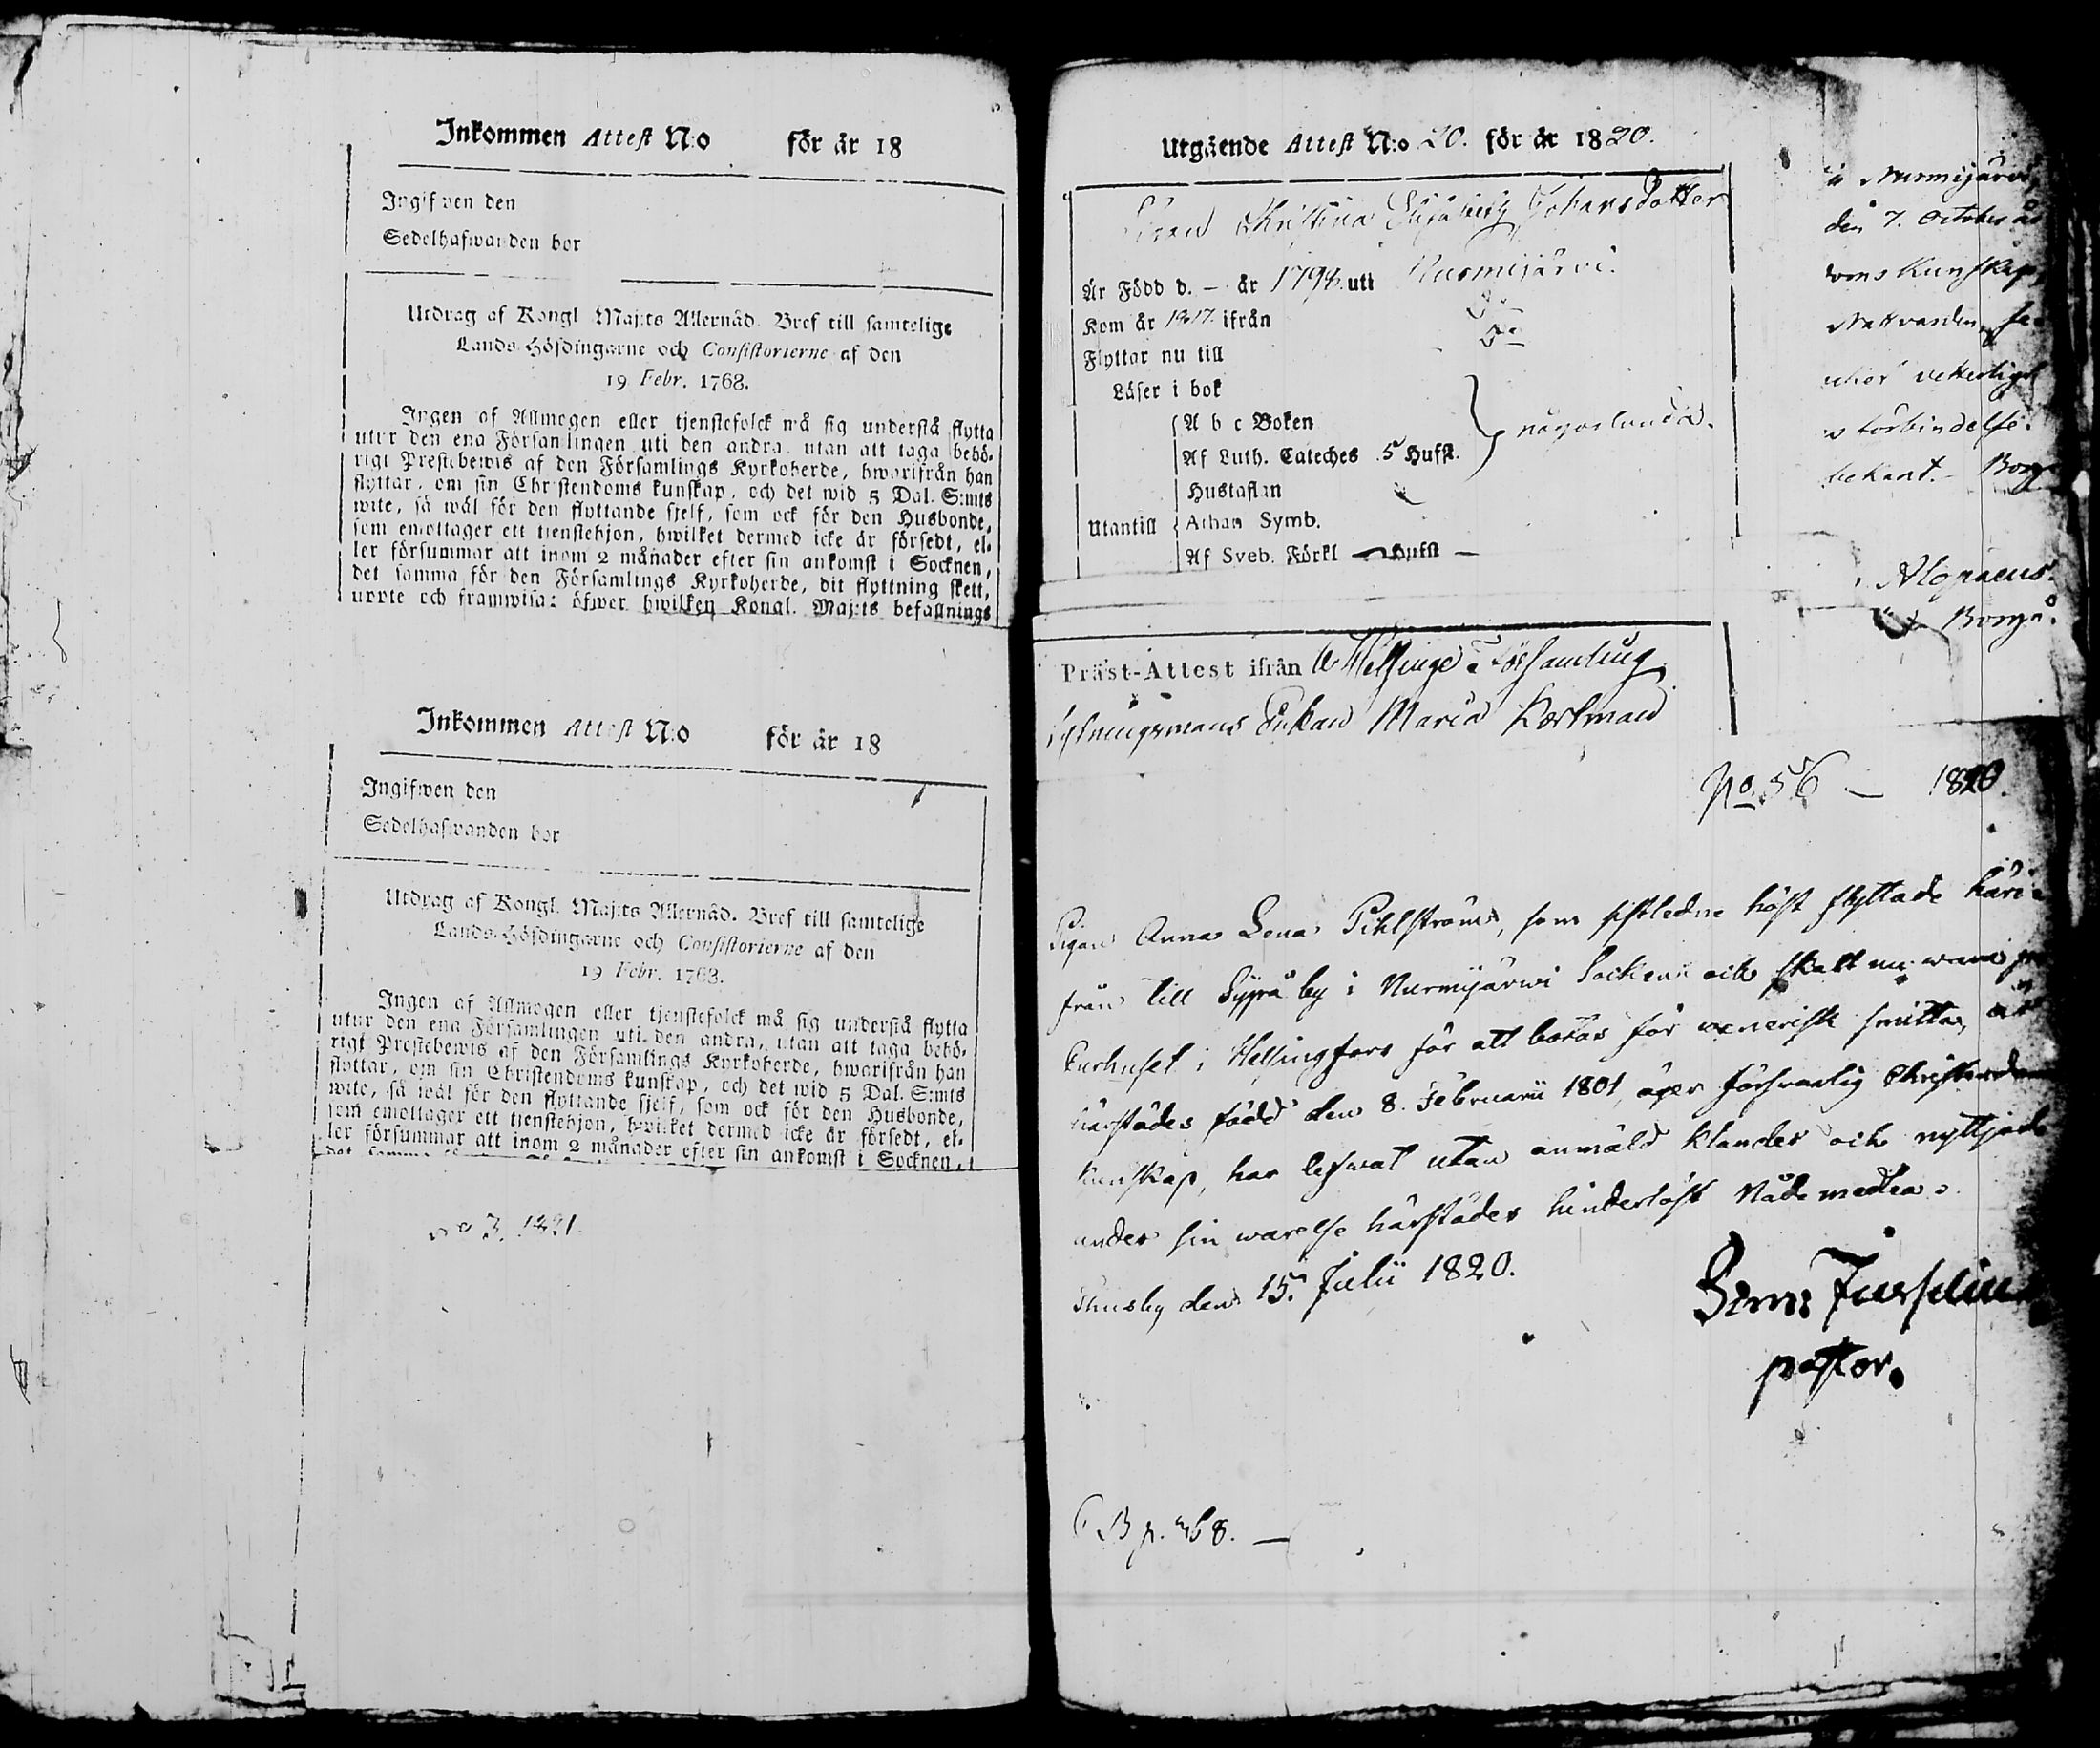 Inkommen Attest N:o för år 18
Ingifwen den
Sedelhafwanden bor
Utdrag af Kongl Maj:ts Allernåd. Bref till samtelige
Lands-Höfdingarne och Consistorierne af den
19 Febr. 1768.
Ingen af Allmogen eller tjenstefolck må sig understå flytta
utur den ena Församlingen uti den andra, utan att taga behö-
rigt Prestebewis af den Församlings Kyrkoherde, hwarifrån han
flyttar, om sin Christendoms kunskap, och det wid 5 Dal. S:mts
wite, så wäl för den flyttande sjelf, som ock för den Husbonde,
som emottager ett tjenstehjon, hwilket dermed icke är försedt, el-
ler försummar att inom 2 månader efter sin ankomst i Socknen,
det samma för den Församlings Kyrkoherde, dit flyttning skett,
upte och framwisa: öfwer hwilken Kongl. Maj:ts befallnings
Inkommen Attest N:o för år 18
Ingifwen den
Sedelhafwanden bor
Utdrag af Kongl. Maj:ts Allernåd. Bref till samtelige
Lands-Höfdingarne och Consistorierne af den
19 Febr. 1768.
Ingen af Allmogen eller tjenstefolck må sig understå flytta
utur den ena Församlingen uti den andra, utan att taga behö-
rigt Prestebewis af den Församlings Kyrkoherde, hwarifrån han
flyttar, om sin Christendoms kunskap, och det wid 5 Dal. S:mts
wite, så wäl för den flyttande sjelf, som ock för den Husbonde,
som emottager ett tjenstehjon, hwilket dermed icke är försedt, el-
ler försummar att inom 2 månader efter sin ankomst i Socknen,
det samma
No 3. 1821.
Utgående Attest N:o 20. för år 1820.
Christina Johansdotter
Är Född d. – år 1798. uti Nurmijärvi.
Kom år 1817. ifrån do
Flyttar nu till do
Läser i bok
A b c Boken
Af Luth. Cateches 5 Hufst. någorlunda.
Hustaflan
Utantill Athan Symb.
Af Sveb. Förkl – Hufst –
Präst-Attest ifrån Helsinge Församling
Enkan Maria
i Nurmijärvi,
den 7. October
doms Kunskap,
Nattvarden
vetterligt
förbindelse.
bekant. – Borg
Alopaeus.
Borgå.
No. 56 – 1820.
Pigan Anna Lena Pihlström, som sistledne höst flyttade häri-
från till Syrjä by i Nurmijärwi Socken och skall nu wara
Curhuset i Helsingfors för att botas för venerisk smitta, är
härstädes född den 8. Februarii 1801, äger försvarlig Christendoms
Kunskap, har lefwat utan anmäld klander och nyttjade
under sin warelse härstädes hinderlöst Nådemedlen.
Thusby den 15. Julii 1820.
pastor.
B p. 468. –